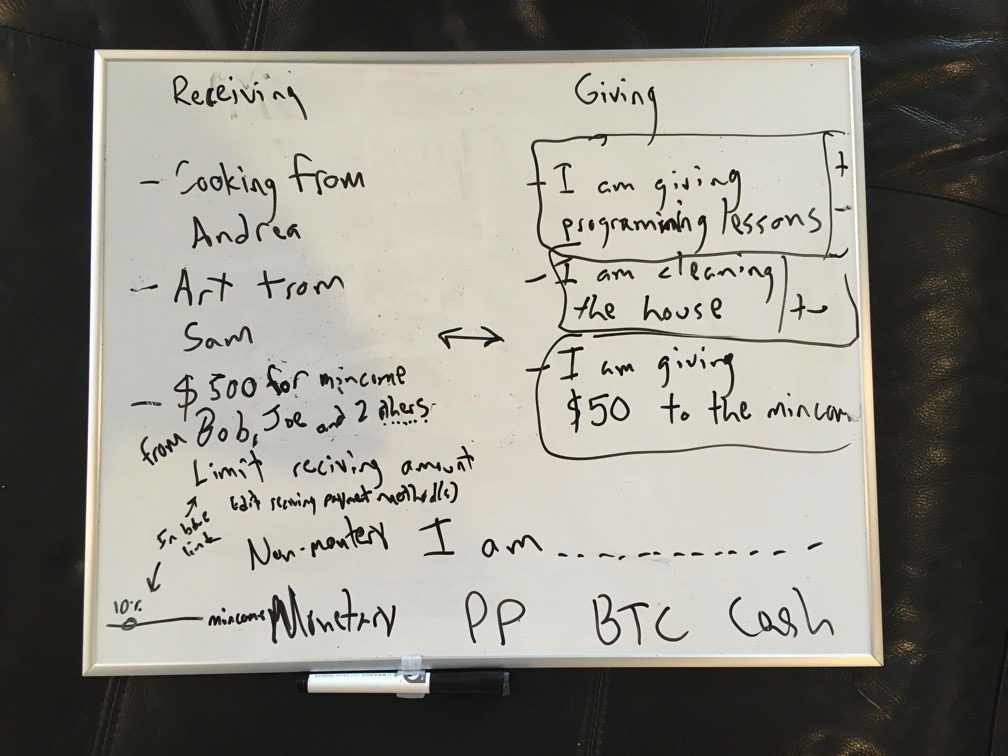 Receiving
- Cooking from
Andrea
- Art from
Sam
- $500 for mincome
from Bob, Joe and 2 others
Limit reciving amount
Edit receiving paymet method(s)
link
Non-montery I am ..............
10%
mincome Monetary PP BTC Cash
Giving
- I am giving
programming lessons
+
-
- I am cleaning
the house
+-
- I am giving
$50 to the mincom